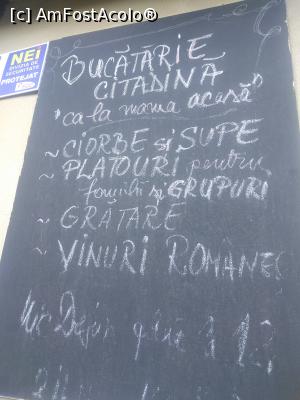 (c) AmFostAcolo®
NEI
DIVIZIA DE
SECURITATE
PROTEJAT
BUCĂTĂRIE
CITADINĂ
"ca la mama acasă"
~ CIORBE și SUPE
~ PLATOURI pentru
familii și GRUPURI
~ GRĂTARE
~ VINURI ROMÂNEȘ
Mic Dejun până la 12